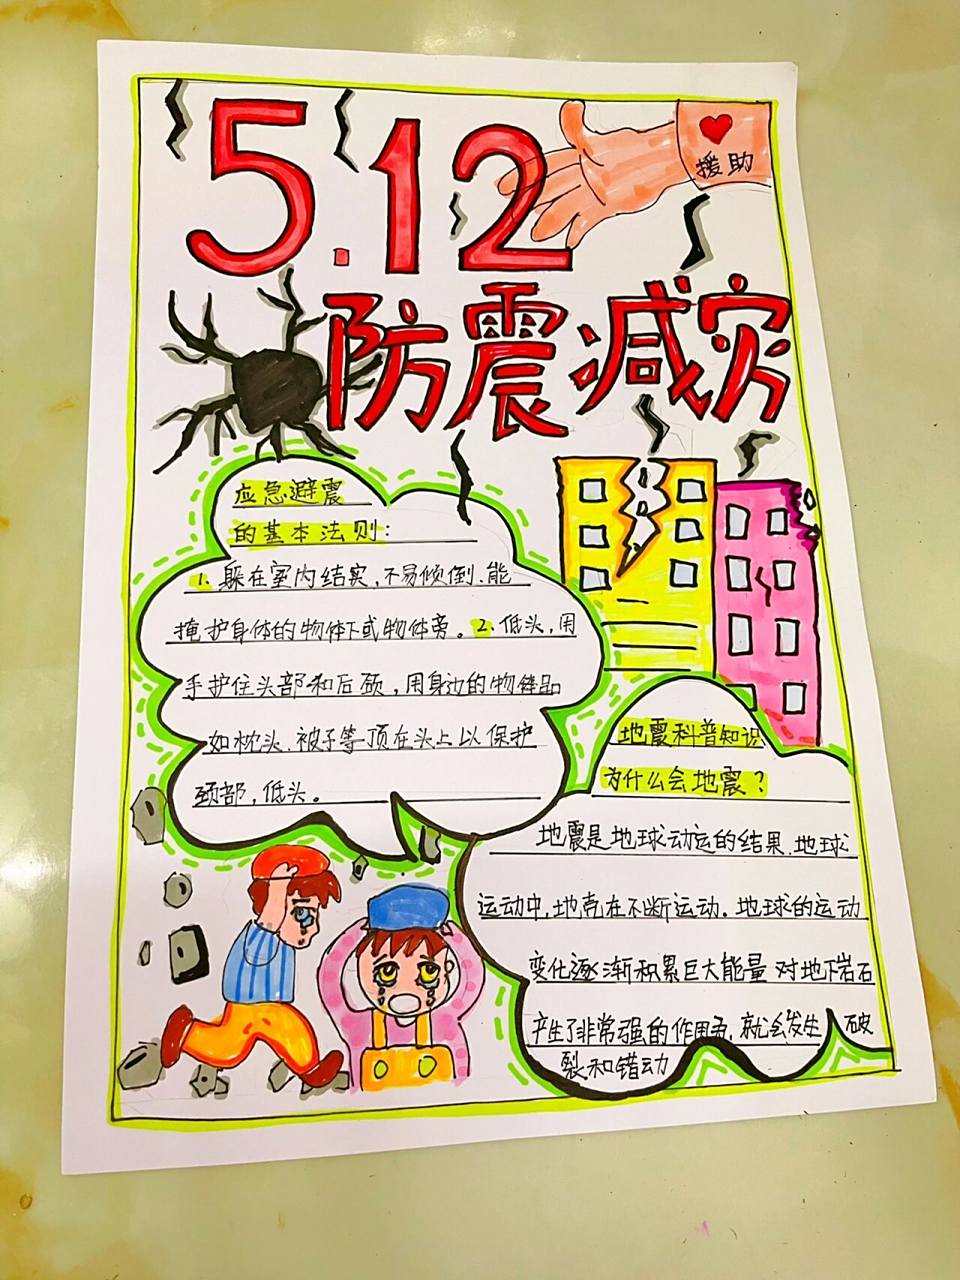 5.12
援助
防震减灾
应急避震
的基本法则：
1. 躲在室内结实，不易倾倒、能
掩护身体的物体下或物体旁。2. 低头，用
手护住头部和后颈，用身边的物件品
如枕头、被子等顶在头上以保护
颈部，低头。
地震科普知识
为什么会地震？
地震是地球动运的结果，地球
运动中，地壳在不断运动。地球的运动
变化逐渐积累巨大能量 对地下岩石
产生了非常强的作用
就会发生 破
裂和错动